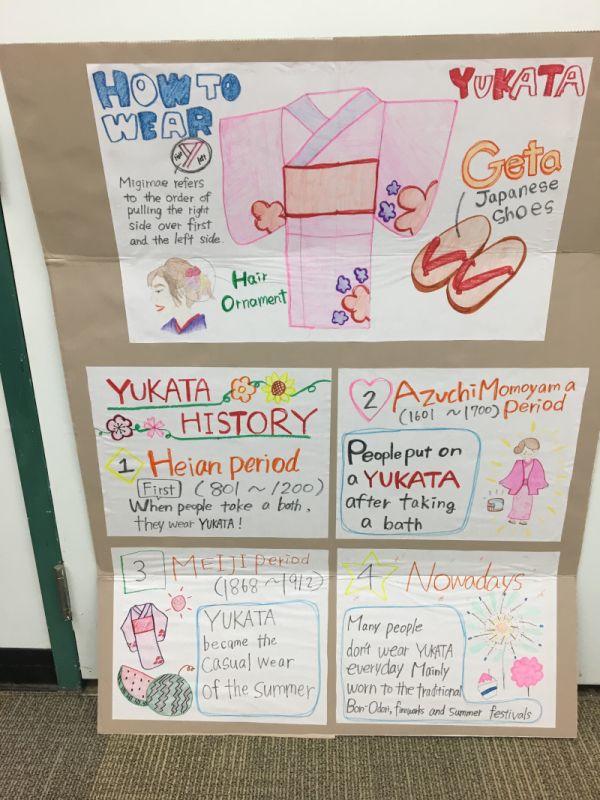 HOW TO
WEAR
YUKATA
Migimae refers
to the order of
pulling the right
side over first
and the left side.
Hair
Ornament
Geta
Japanese
Shoes
YUKATA
HISTORY
1 Heian period
First (801 ~ 1200)
When people take a bath,
they wear YUKATA!
2 Azuchi Momoyama
(1601 ~ 1700) Period
People put on
a YUKATA
after taking
a bath
3 MEIJI period
(1868 ~ 1912)
YUKATA
became the
Casual wear
of the Summer
4 Nowadays
Many people
don't wear YUKATA
everyday Mainly
worn to the traditional
Bon-Odori, fireworks and summer festivals